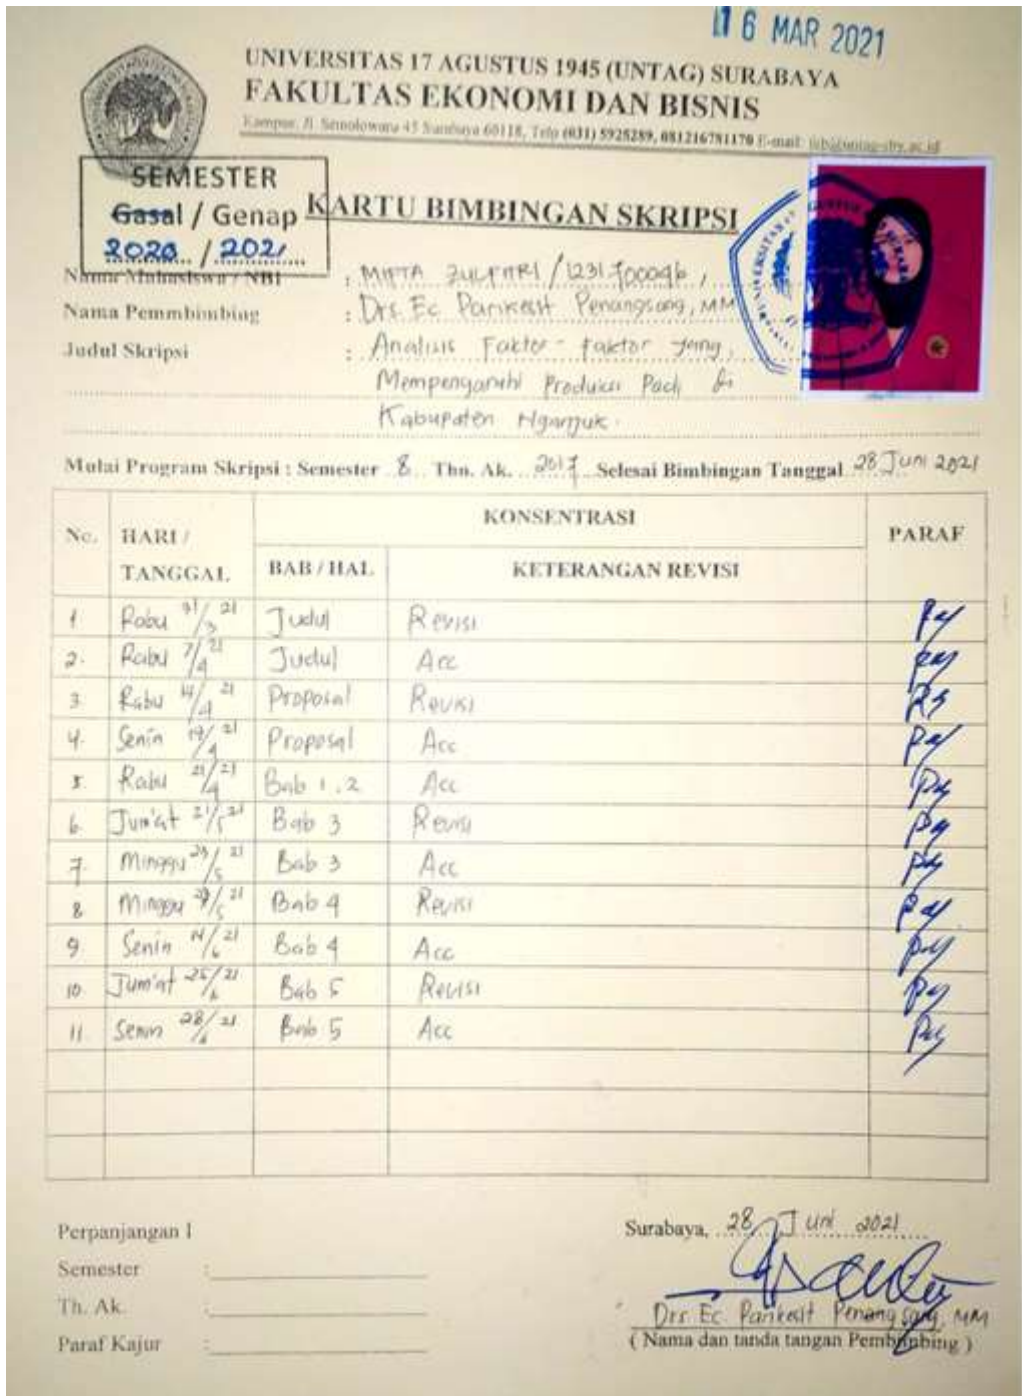 16 MAR 2021
UNIVERSITAS 17 AGUSTUS 1945 (UNTAG) SURABAYA
FAKULTAS EKONOMI DAN BISNIS
Kampus: Jl. Semolowaru 45 Surabaya 60118, Telp (031) 5925289, 081216781170 E-mail:
SEMESTER
Gasal / Genap
2020 / 2021
KARTU BIMBINGAN SKRIPSI
Nama Mahasiswa / NBI : MIFTA ZULFITRI / 1231700096
Nama Pemmbimbing : Drs. Ec Parikesit Penangsang, MM
Judul Skripsi : Analisis Faktor - Faktor yang
Mempengaruhi Produksi Padi di
Kabupaten Nganjuk.
Mulai Program Skripsi : Semester 8 Thn. Ak. 2017 Selesai Bimbingan Tanggal 28 Juni 2021
No. HARI / TANGGAL KONSENTRASI PARAF
BAB / HAL KETERANGAN REVISI
1 Rabu 31/3 21 Judul Revisi
2. Rabu 7/4 21 Judul Acc
3 Rabu 14/4 21 Proposal Revisi
4. Senin 19/4 21 Proposal Acc
5. Rabu 21/4 21 Bab 1, 2 Acc
6. Jum'at 21/5 21 Bab 3 Revisi
7. Minggu 23/5 21 Bab 3 Acc
8 Minggu /5 21 Bab 4 Revisi
9 Senin 14/6 21 Bab 4 Acc
10 Jum'at 25/6 21 Bab 5 Revisi
11 Senin 28/6 21 Bab 5 Acc
Perpanjangan I
Semester :
Th. Ak :
Paraf Kajur :
Surabaya, 28 Juni 2021
Drs Ec Parikesit Penangsang, MM
( Nama dan tanda tangan Pembimbing )